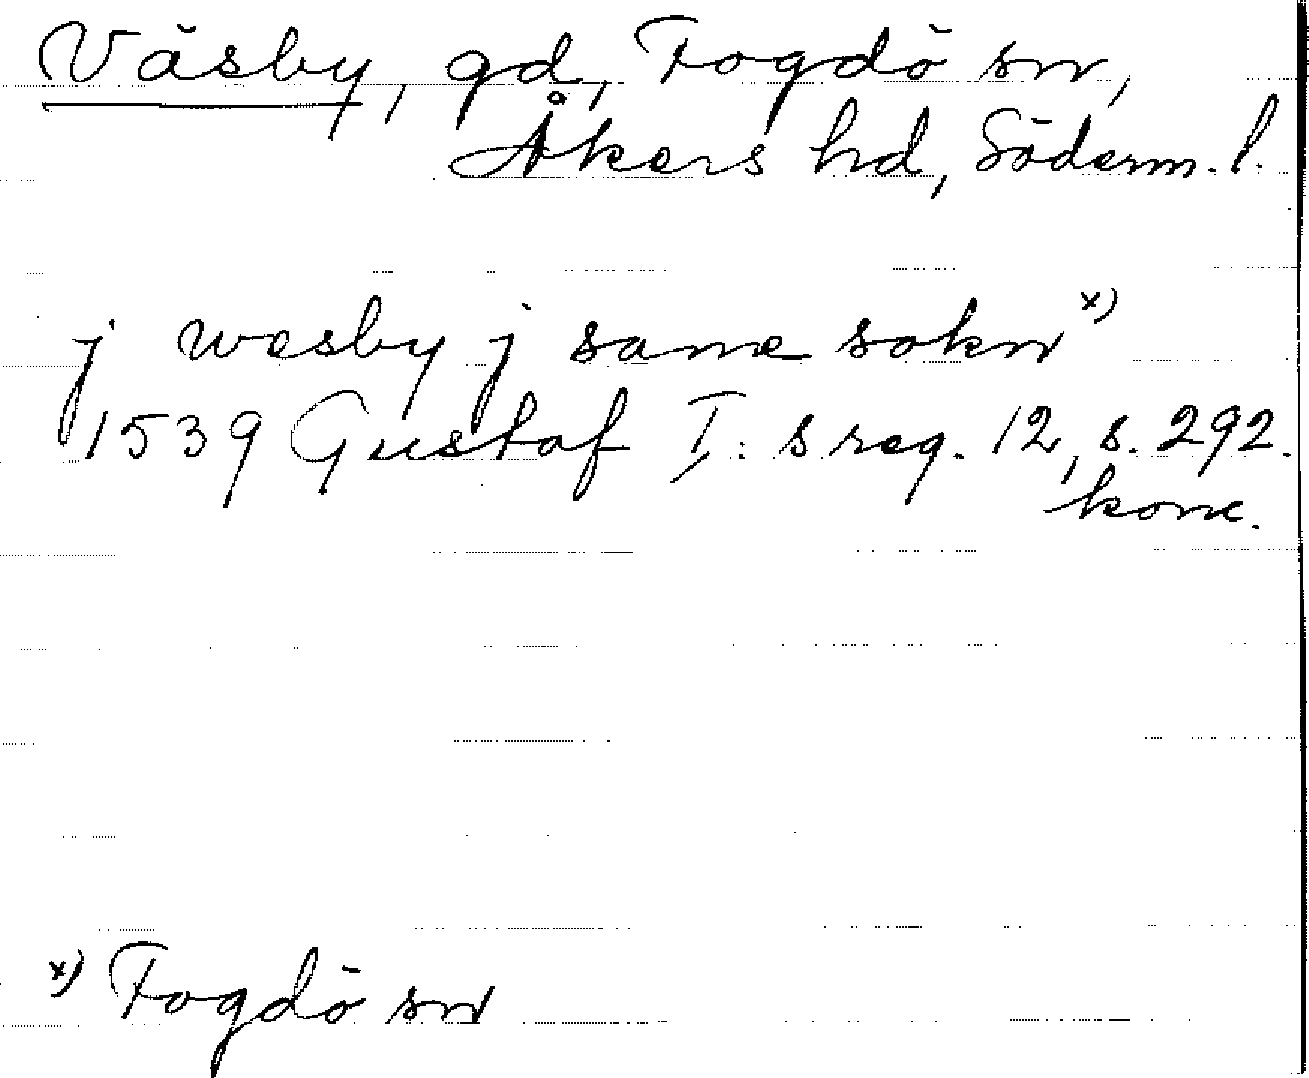 Väsby, gd, Fogdö sn,
Åkers hd, Söderm. l.
j wesby j same sokn x)
1539 Gustaf I:s reg. 12, s. 292.
konc.
x) Fogdö sn